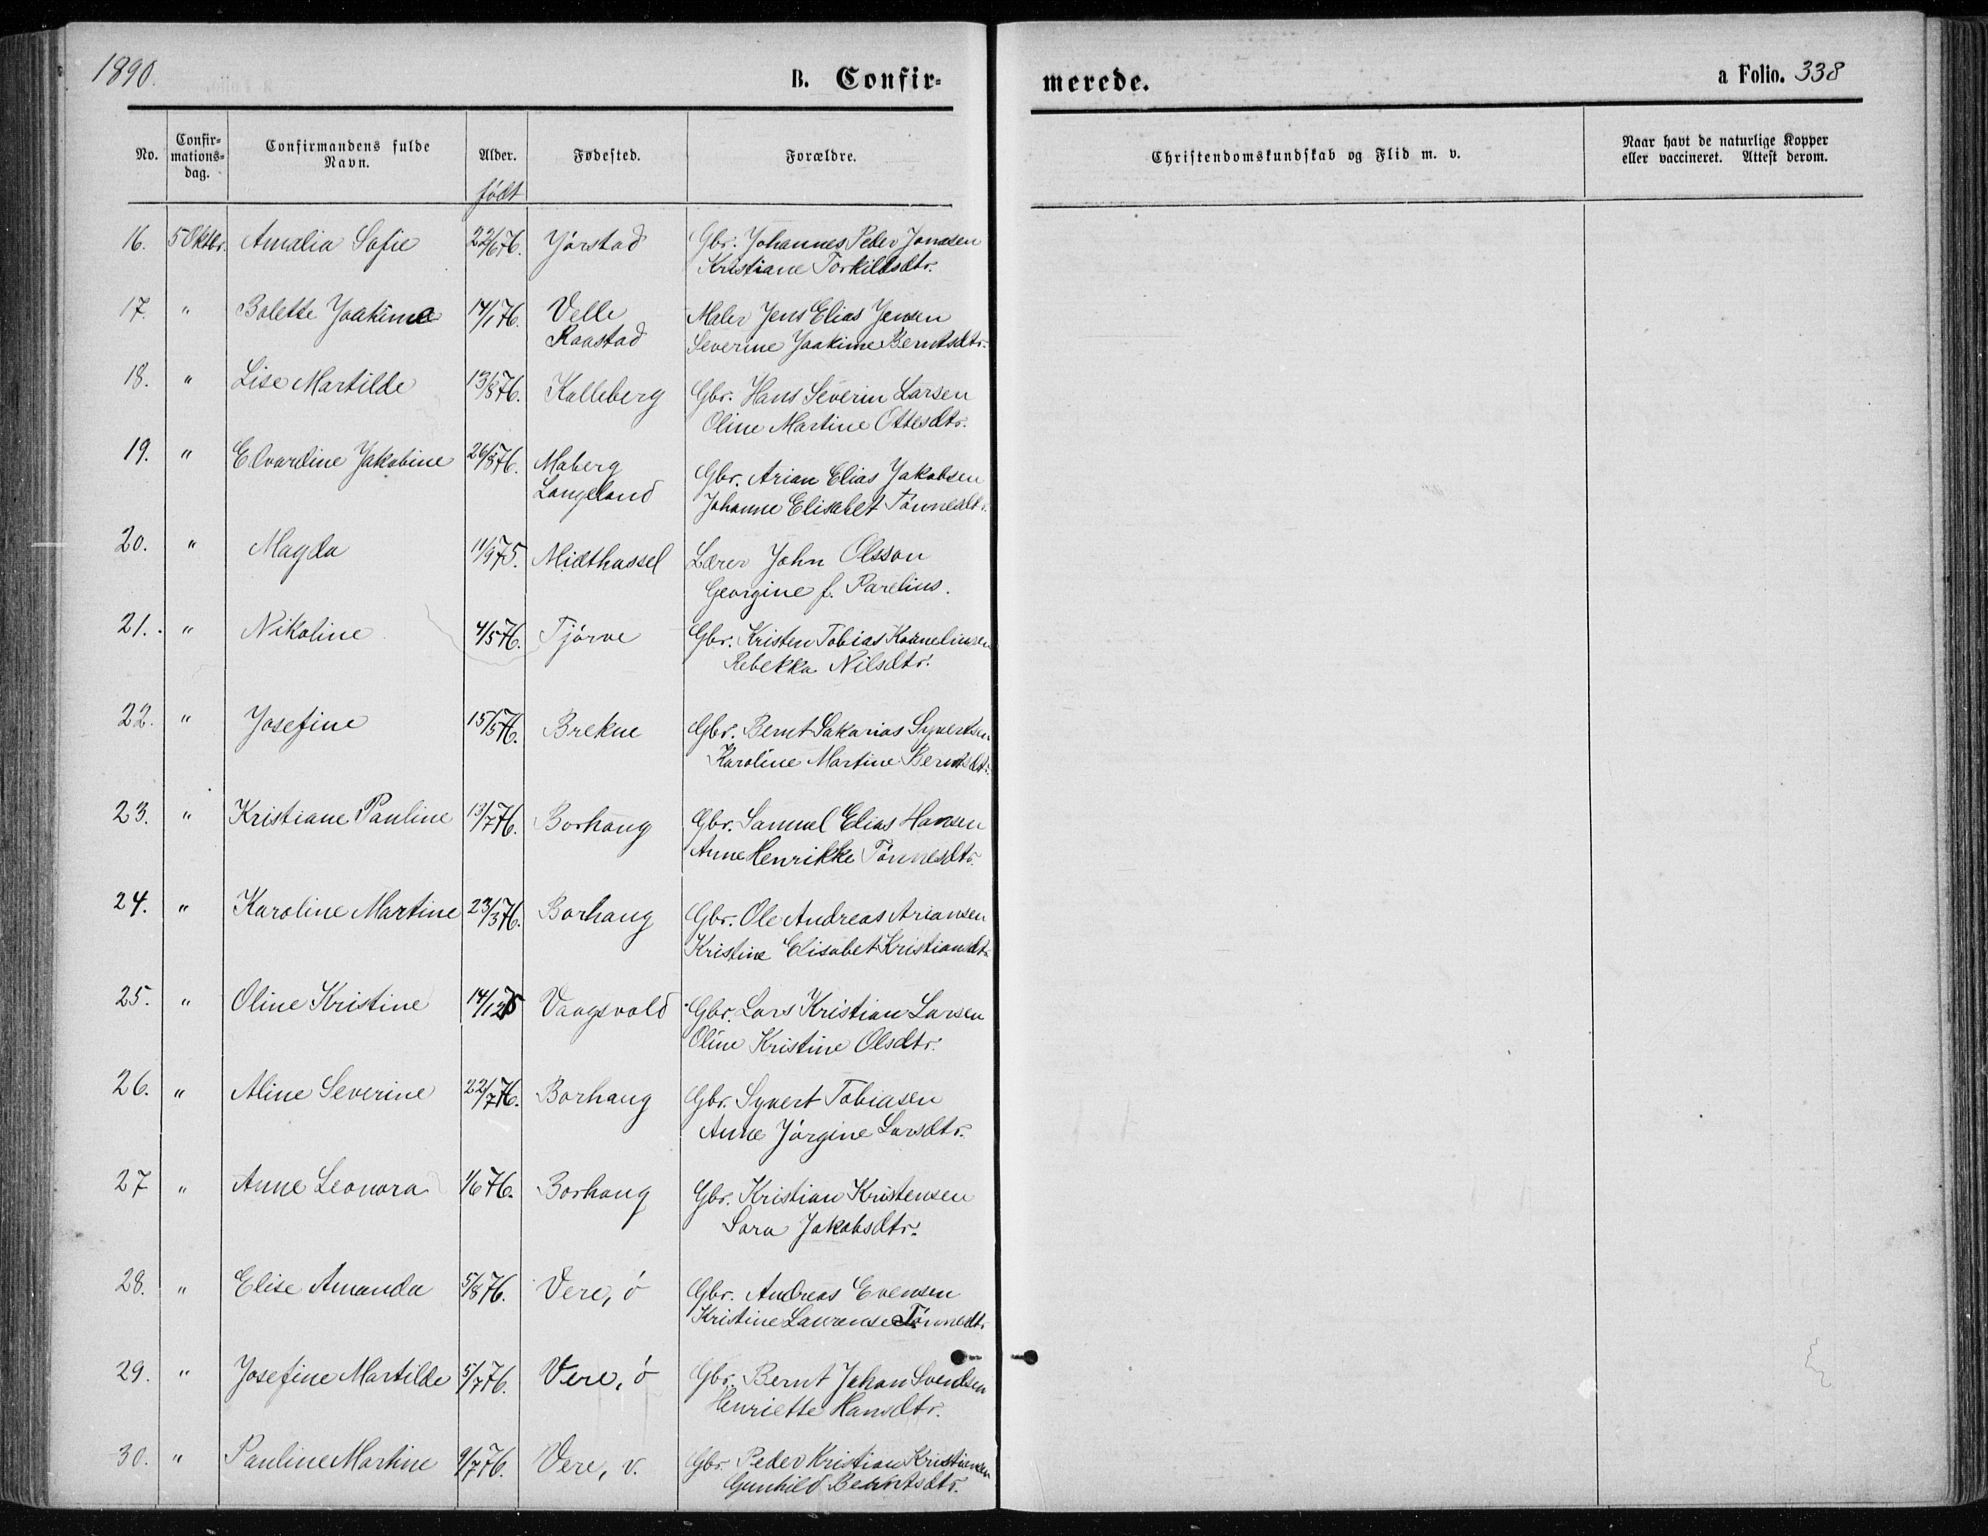 1890.
B. Confir-
merede.
a Folio. 338
No.
Confir-
mations-
dag.
Confirmandens fulde
Navn.
Alder.
Fødested.
Forældre.
Christendomskundskab og Flid m. v.
Naar havt de naturlige Kopper
eller vaccineret. Attest derom.
født
16. 5 Oktbr. Amalia Sofie 22/6 76. Jørstad Gbr. Johannes Peder Jonasen
Kristiane Torkildsdtr.
17. " Bolette Joakime 14/1 76. Velle Maler Jens Elias Jensen
Raastad Severine Joakime Berntsdtr.
18. " Lise Martilde 13/8 76. Kalleberg Gbr. Hans Severin Larsen
Oline Martine Ottesdtr.
19. " Edvardine Jakobine 26/8 76. Maberg Gbr. Arian Elias Jakobsen
Langeland Johanne Elisabet Tønnesdtr.
20. " Magda 11/9 75. Midthassel Lærer John Olsson
Georgine f. Parelius.
21. " Nikoline 4/5 76. Tjørve Gbr. Kristen Tobias Korneliusen
Rebekka Nilsdtr.
22. " Josefine 15/5 76. Brekne Gbr. Bernt Sakarias Syvertsen
Karoline Martine Berntsdtr.
23. " Kristiane Pauline 13/7 76. Borhaug Gbr. Samuel Elias Hansen
Anne Henrikke Tønnesdtr.
24. " Karoline Martine 23/3 76. Borhaug Gbr. Ole Andreas Ariansen
Kristine Elisabet Kristiansdtr.
25. " Oline Kristine 14/12 75 Vaagsvold Gbr. Lars Kristian Larsen
Oline Kristine Olsdtr.
26. " Aline Severine 22/7 76. Borhaug Gbr. Syvert Tobiasen
Anne Jørgine Larsdtr.
27 " Anne Leonora 1/6 76. Borhaug Gbr. Kristian Kristensen
Sara Jakobsdtr.
28. " Elise Amanda 5/8 76. Vere, ø Gbr. Andreas Evensen
Kristine Laurense Tønnesdtr.
29. " Josefine Martilde 5/7 76. Vere, ø Gbr. Bernt Johan Svendsen
Henriette Hansdtr.
30. " Pauline Martine 9/7 76. Vere, v. Gbr. Peder Kristian Kristiansen
Gunhild Berntsdtr.